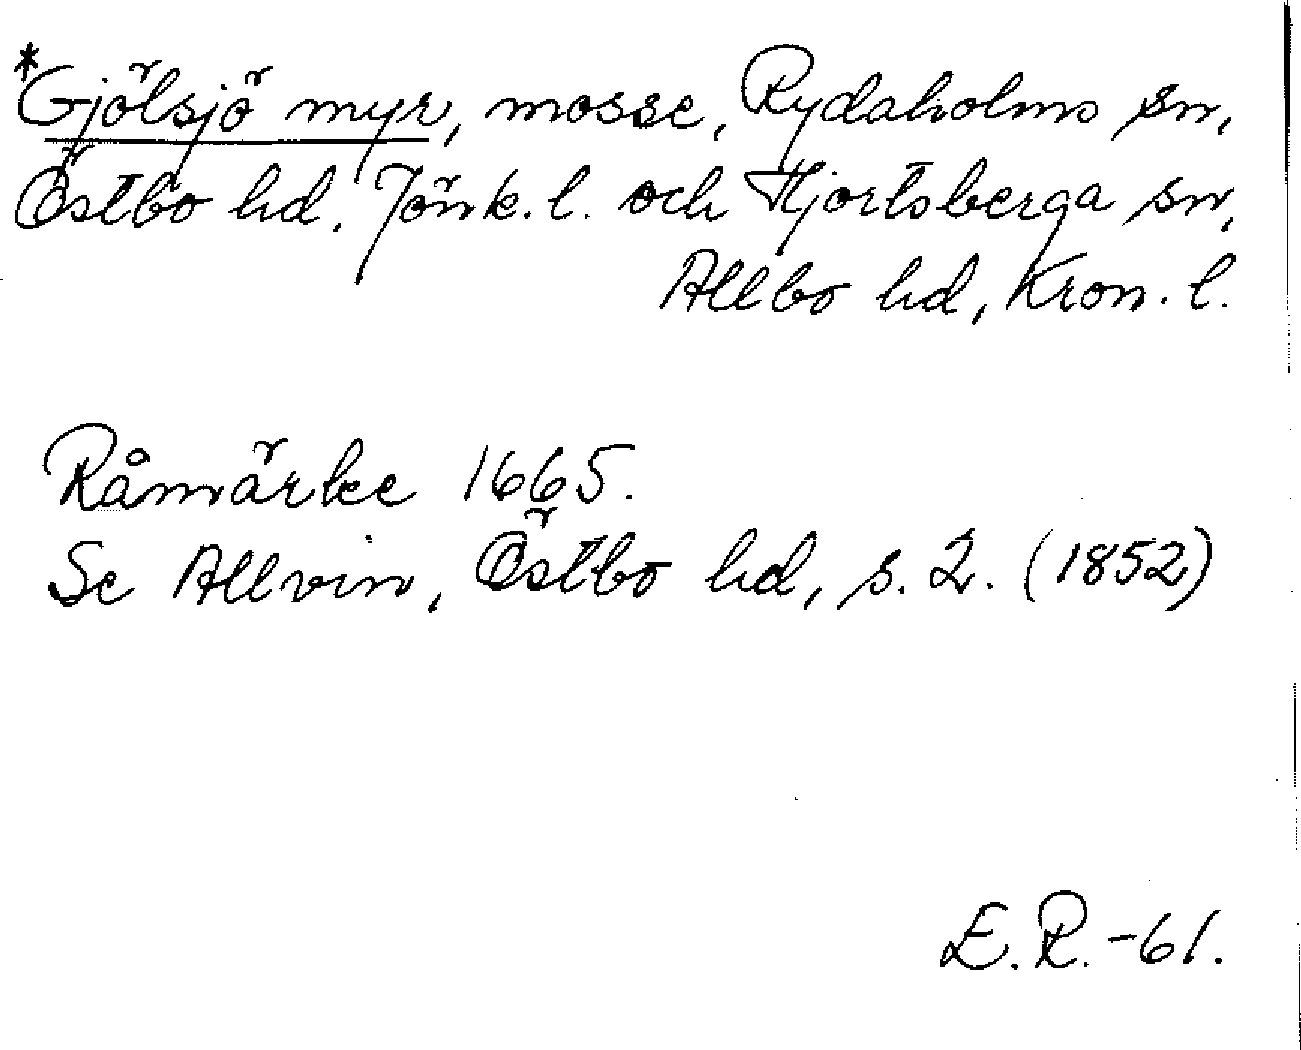 *Gjölsjö myr, mosse, Rydaholms sn,
Östbo hd. Jönk. l. och Hjortsberga sn,
Allbo hd, Kron. l.
Råmärke 1665.
Se Allvin, Östbo hd, s. 2. (1852)
E. R. -61.